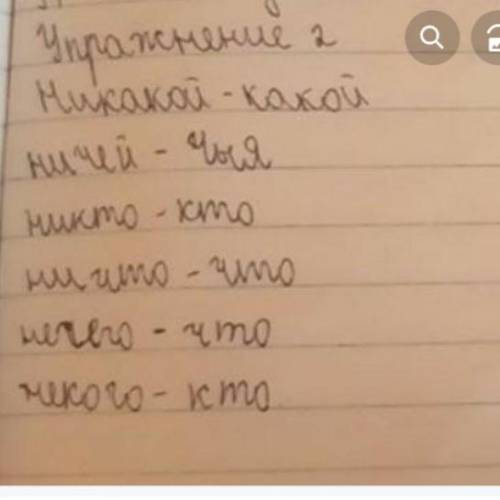 Упражнение 2
Никакой - какой
ничей - Чья
никто - кто
ничто - что
нечего - что
некого - кто